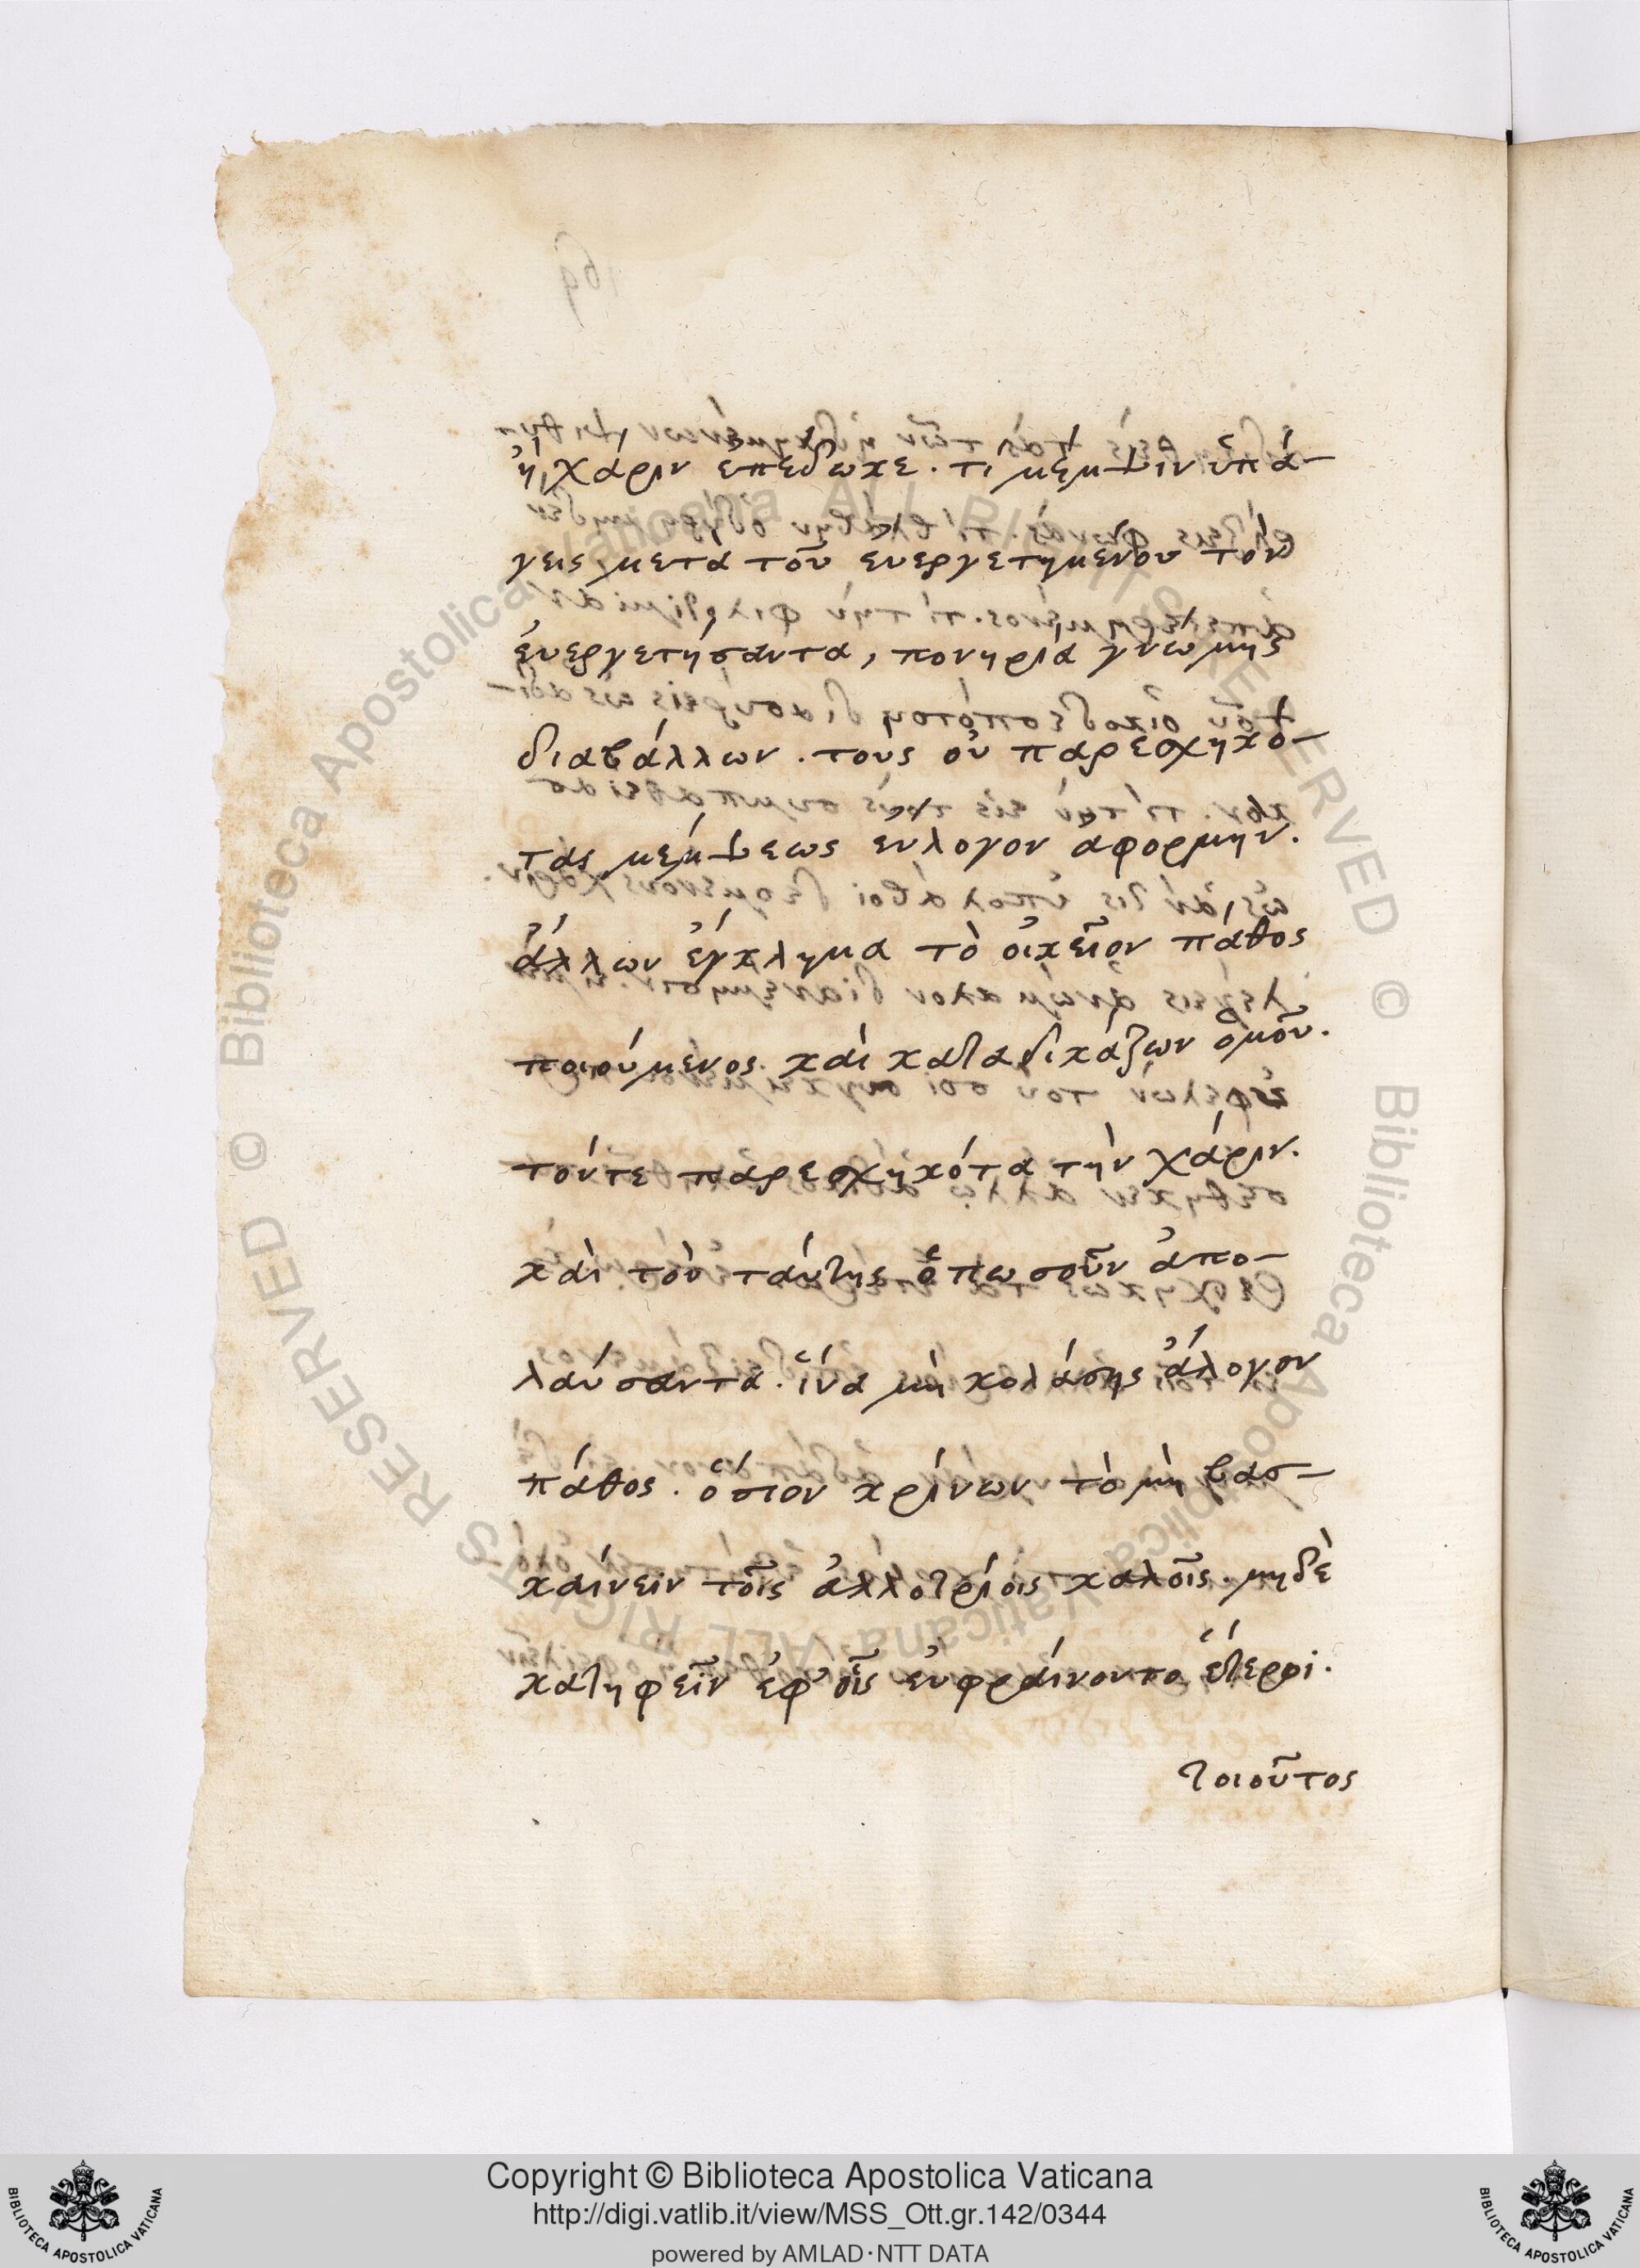 ἢ χάριν ἐπέδωκε. τί μέμψιν ὑπά-
γεις μετὰ τοῦ ἐυεργετημένου τὸν
ἐυεργετήσαντα, πονηρία γνώμης
διαβάλλων. τοὺς οὐ παρεσχηκό-
τας μέμψεως εὔλογον ἀφορμήν.
ἄλλων ἔγκλημα τὸ οἰκεῖον πάθος
ποιούμενος. καὶ καταδικάζων ὁμοῦ.
τόντε παρεσχηκότα τὴν χάριν.
καὶ τὸν ταύτης ὁπωσοῦν ἀπο-
λαύσαντα. ἵνα μὴ κολάσης ἄλογον
πάθος. ὅσιον κρίνων τὸ μὴ βασ-
καίνειν τοῖς ἀλλοτρίοις καλοῖς. μηδὲ
κατηφεῖν ἐφ' οἷς εὐφραίνοντο ἕτεροι.
τοιοῦτος
Copyright © Biblioteca Apostolica Vaticana
http://digi.vatlib.it/view/MSS_Ott.gr.142/0344
powered by AMLAD·NTT DATA
BIBLIOTECA APOSTOLICA VATICANA
BIBLIOTECA APOSTOLICA VATICANA
© Biblioteca Apostolica Vaticana ALL RIGHTS RESERVED © Biblioteca Apostolica Vaticana ALL RIGHTS RESERVED